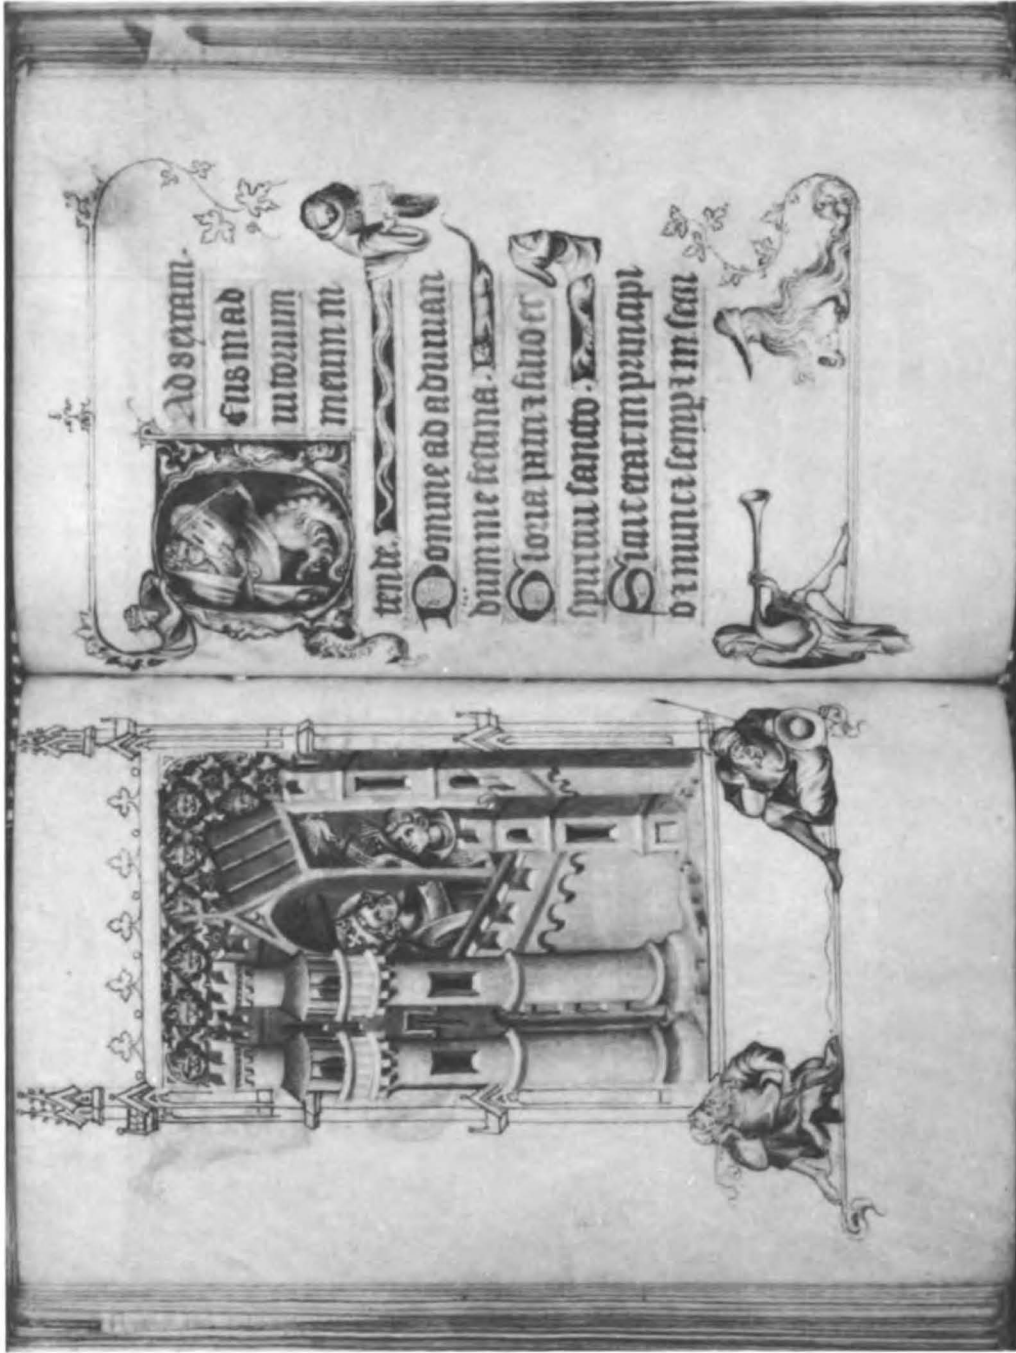 Ad sextam.
eus in ad
iutorium
meum in
tende.
Domine ad adiuuan
dum me festina.
Gloria patri ⁊ filio et
spiritui sancto.
Sicut erat in principi
o ⁊ nunc ⁊ semp ⁊ in secu